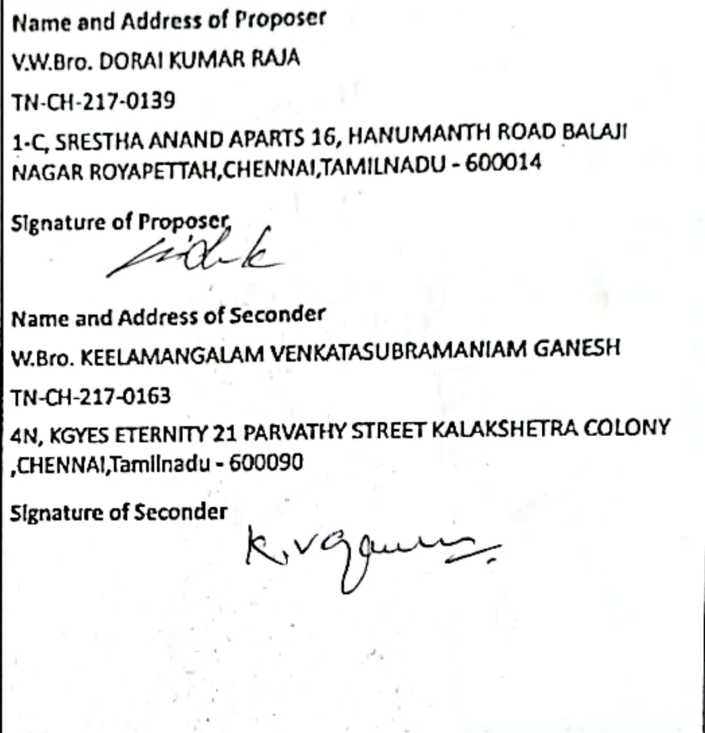 Name and Address of Proposer
V.W.Bro. DORAI KUMAR RAJA
TN-CH-217-0139
1-C, SRESTHA ANAND APARTS 16, HANUMANTH ROAD BALAJI
NAGAR ROYAPETTAH,CHENNAI,TAMILNADU - 600014
Signature of Proposer
Name and Address of Seconder
W.Bro. KEELAMANGALAM VENKATASUBRAMANIAM GANESH
TN-CH-217-0163
4N, KGYES ETERNITY 21 PARVATHY STREET KALAKSHETRA COLONY
,CHENNAI,Tamilnadu - 600090
Signature of Seconder
K.V